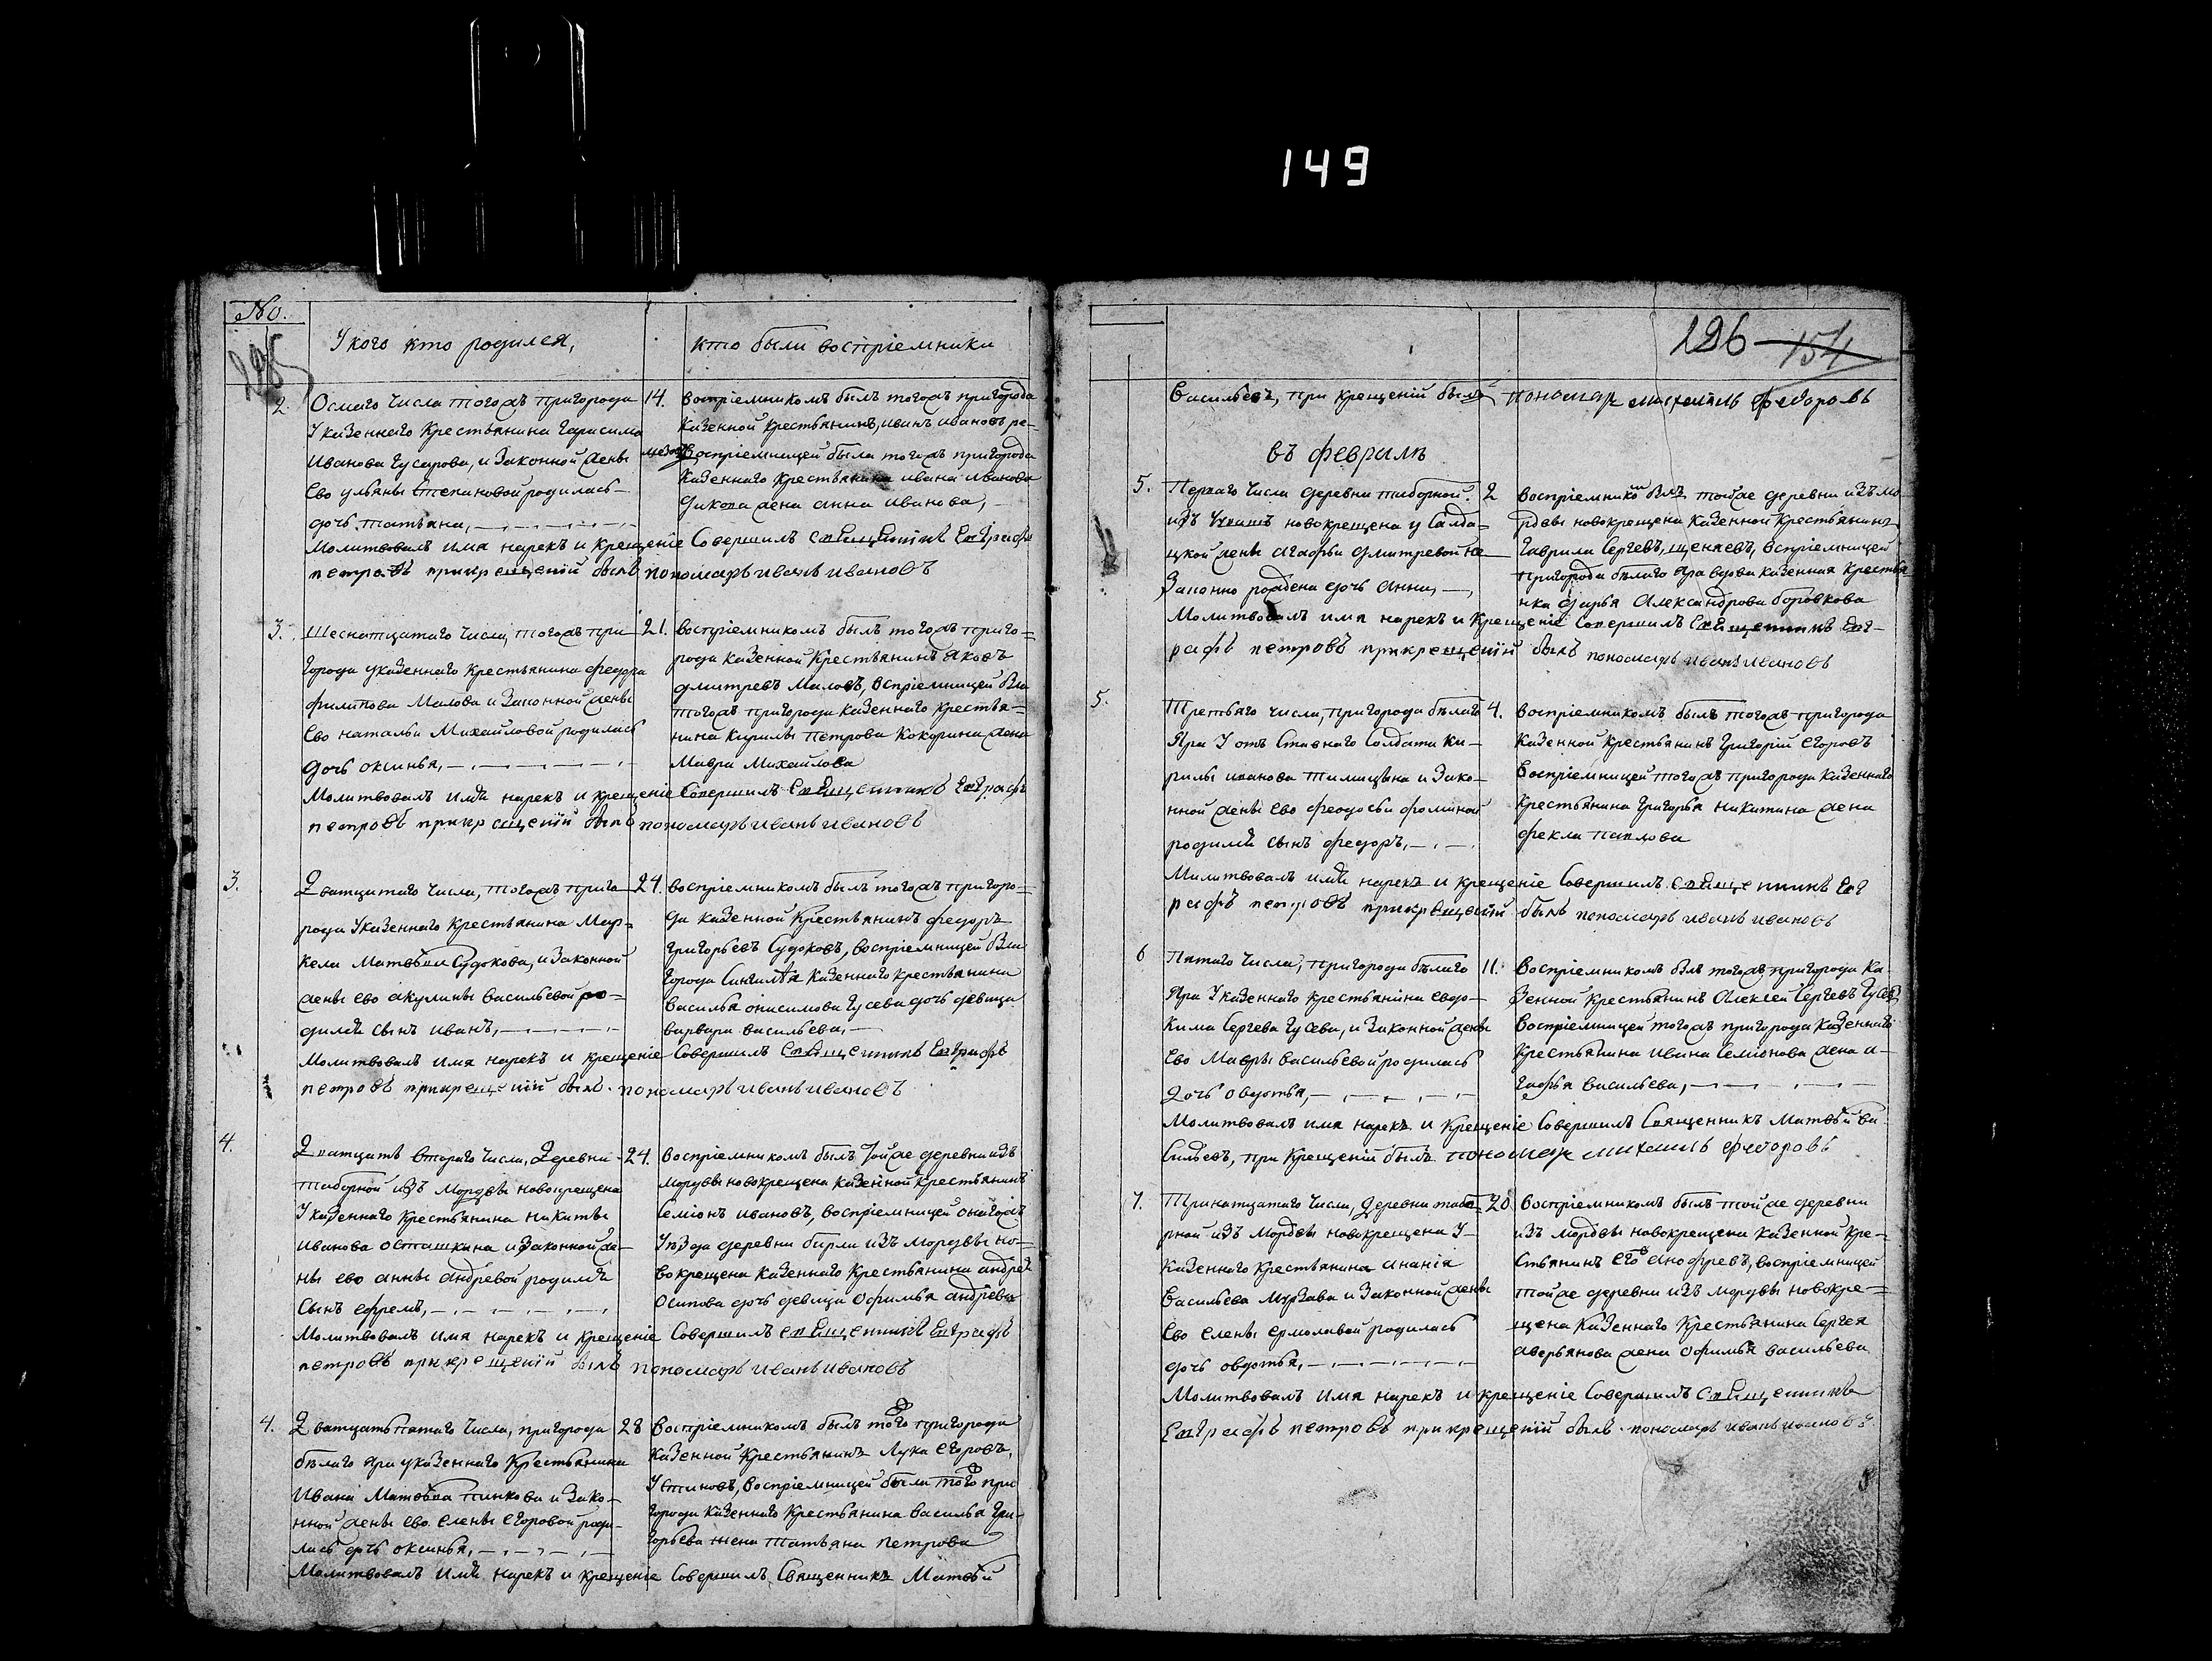 149
No.
У кого кто родился,
кто были воспріемники
195
2.
Осмаго числа тогожъ пригорода
У казеннаго крестьянина гарасима
Иванова Гусарова, и законной жены
Ево ульяны Степановой родилась
дочь татьяна,
14.
воспріемникомъ былъ тогожъ пригорода
казенной крестьянинъ, иванъ ивановъ
воспріемницей была тогожъ пригорода
казеннаго крестьянина ивана иванова
дикова жена анна иванова,
Молитвовалъ имя нарекъ и крещеніе Совершилъ Священникъ Евграфъ
петровъ прикрещеніи былъ пономарь иванъ ивановъ
3.
Шеснатцатаго числа, тогожъ при
города указеннаго крестьянина федора
филипова Малова и законной жены
Ево натальи Михайловой родилась
дочь оксинья,
21.
воспріемникомъ былъ тогожъ приго=
рода казенной крестьянинъ яковъ
дмитревъ Маловъ, воспріемницей была
тогожъ пригорода казеннаго крестья=
нина кирилы петрова Кокорина жена
Мавра Михайлова
Молитвовалъ имя нарекъ и крещеніе Совершилъ Священникъ Евграфъ
петровъ прикрещеніи былъ пономарь иванъ ивановъ
3.
Дватцатаго числа, тогожъ приго
рода Указеннаго крестьянина Мар=
кела Матвѣева Судокова, и законной
жены ево акулины васильевой ро=
дился сынъ иванъ,
24.
воспріемникомъ былъ тогожъ пригоро=
да казенной крестьянинъ федоръ
григорьевъ Судоковъ, воспріемницей была
города Сингилѣя казеннаго крестьянина
василья онисимова гусева дочь девица
варвара васильева,
Молитвовалъ имя нарекъ и крещеніе Совершилъ Священникъ Евграфъ
петровъ прикрещеніи былъ пономарь иванъ ивановъ
4.
Дватцать втораго числа, Деревни
таборной изъ Мордвы новокрещена
Указеннаго крестьянина никиты
иванова осташкина и законной же=
ны ево анны андревой родился
сынъ ефремъ,
24.
воспріемникомъ былъ тойже деревни изъ
мордвы новокрещена казенной крестьянинъ
Семіонъ ивановъ, воспріемницей оногожъ
Уѣзда деревни бирли изъ мордвы но=
вокрещена казеннаго крестьянина андрея
осипова дочь девица офимья андрева
Молитвовалъ имя нарекъ и крещеніе Совершилъ Священникъ Евграфъ
петровъ прикрещеніи былъ пономарь иванъ ивановъ
4.
Дватцать пятаго числа, пригорода
бѣлаго яра указеннаго крестьянина
Ивана Матвѣева пинкова и зако=
нной жены ево елены егоровой роди=
лась дочь оксинья,
28
воспріемникомъ былъ тогожъ пригорода
казенной крестьянинъ Лука егоровъ,
Устиновъ, воспріемницей была тогожъ при
города казеннаго крестьянина василья гри=
горьева жена татьяна петрова
Молитвовалъ имя нарекъ и крещеніе Совершилъ Священникъ Матвѣй
196 154
васильевъ, при крещеніи былъ пономарь михаилъ федоровъ
въ февралѣ
5.
Перваго числа деревни таборной
изъ новокрещена у Салда=
цкой жены агафьи дмитревой не
законно рождена дочь анна,
2
воспріемникомъ былъ тойже деревни изъ мо
рдвы новокрещена казенной крестьянинъ
гаврила Сергевъ, воспріемницей
пригорода бѣлаго яра вдова казенная крестья
нка дарья александрова боровкова
Молитвовалъ имя нарекъ и крещеніе совершилъ Священникъ Евг=
рафъ петровъ прикрещеніи былъ пономарь иванъ ивановъ
5.
Третьяго числа, пригорода бѣлаго
Яра У отъ Ставнаго Солдата ки=
рилы иванова и зако=
нной жены ево феодосьи фоминой
родился сынъ федоръ,
4.
воспріемникомъ былъ тогожъ пригорода
казенной крестьянинъ григорій егоровъ
воспріемницей тогожъ пригорода казеннаго
крестьянина григорья никитина жена
фекла павлова
Молитвовалъ имя нарекъ и крещеніе Совершилъ Священникъ Евг
рафъ петровъ прикрещеніи былъ пономарь иванъ ивановъ
6
Пятаго числа, пригорода бѣлаго
Яра Указеннаго крестьянина евдо=
кима Сергева гусева, и законной жены
ево Мавры васильевой родилась
дочь овдотья,
11.
воспріемникомъ былъ тогожъ пригорода ка
зенной крестьянинъ Алексей Сергевъ гусев
воспріемницей тогожъ пригорода казеннаго
крестьянина ивана Семіонова жена а=
гафья васильева,
Молитвовалъ имя нарекъ и крещеніе Совершилъ Священникъ Матвѣй ва
сильевъ, при крещеніи былъ пономарь михаилъ федоровъ
7.
Тринатцатаго числа, Деревни табо=
рной изъ мордвы новокрещена у=
казеннаго крестьянина ананія
васильева Мурзава и законной жены
ево елены ермолавой родилась
дочь овдотья,
20
воспріемникомъ былъ тойже деревни
изъ мордвы новокрещена казенной кре=
стьянинъ анофревъ, воспріемницей
тойже деревни изъ мордвы новокре=
щена казеннаго крестьянина Сергея
аверьянова жена офимья васильева
Молитвовалъ имя нарекъ и крещеніе Совершилъ Священникъ
Евграфъ петровъ прикрещеніи былъ пономарь иванъ ивановъ